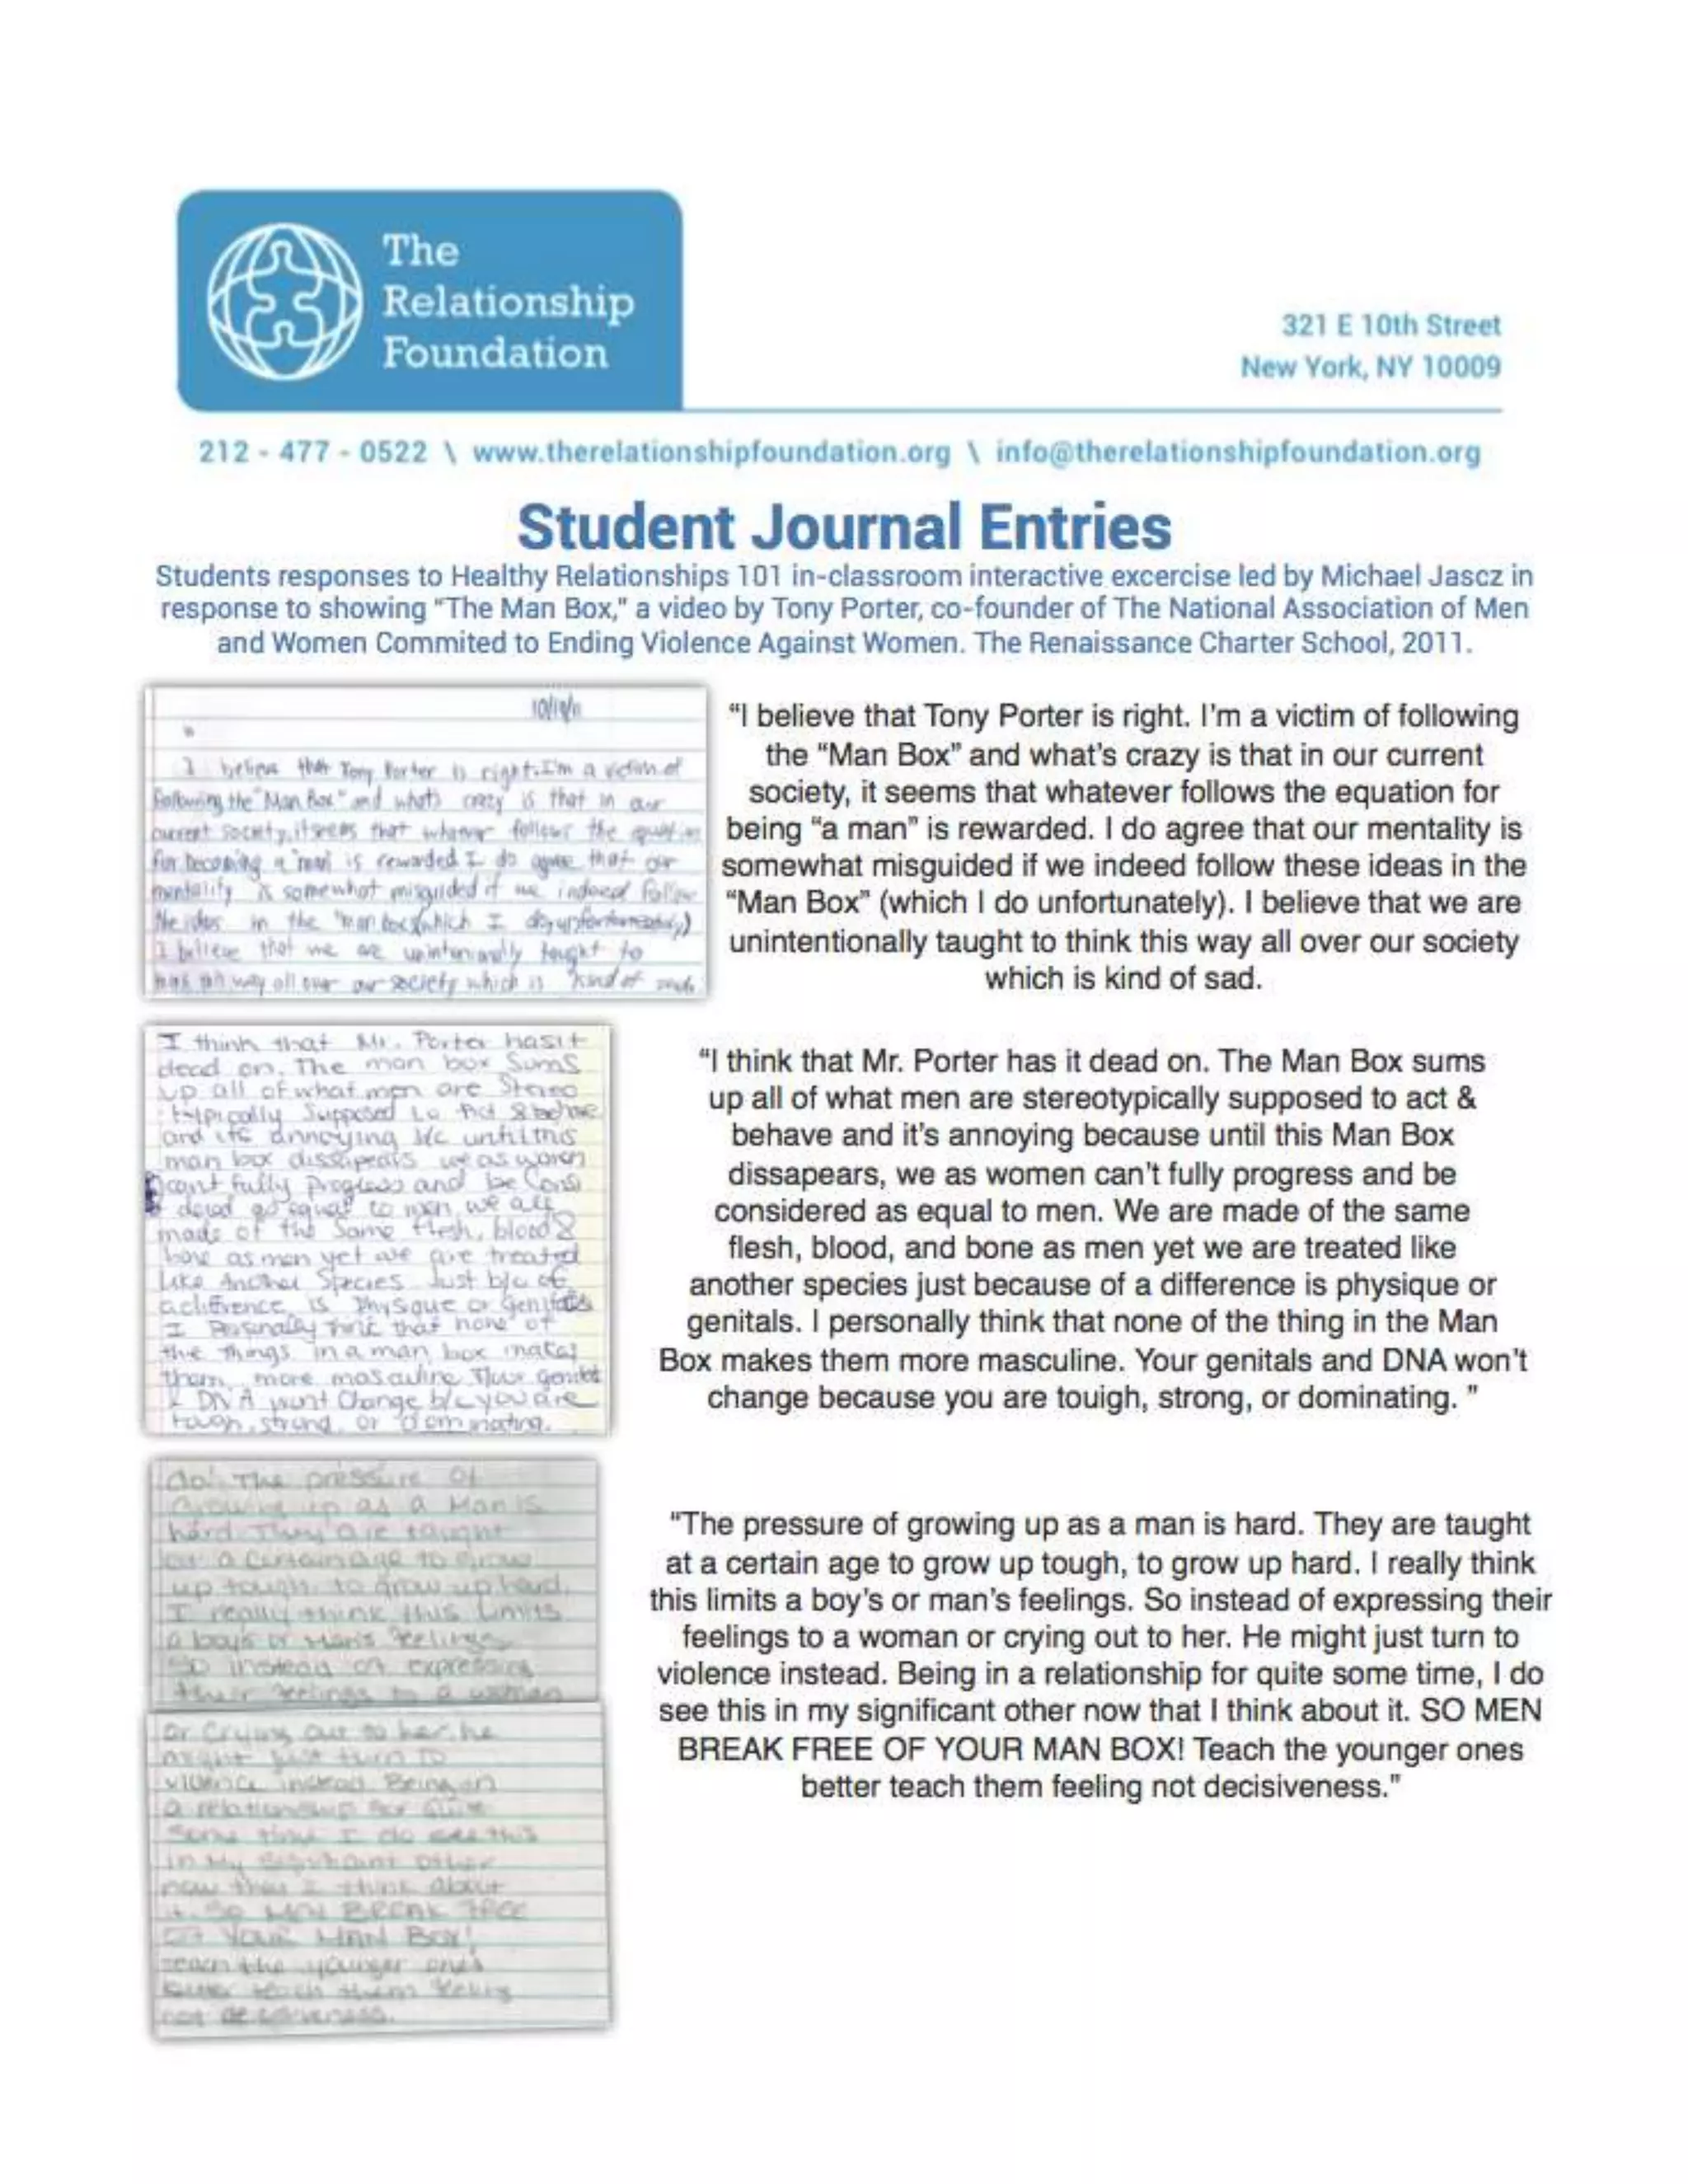 The
Relationship
Foundation
321 E 10th Street
New York, NY 10009
212 - 477 - 0522 \ www.therelationshipfoundation.org \ info@therelationshipfoundation.org
Student Journal Entries
Students responses to Healthy Relationships 101 in-classroom interactive excercise led by Michael Jascz in
response to showing "The Man Box," a video by Tony Porter, co-founder of The National Association of Men
and Women Commited to Ending Violence Against Women. The Renaissance Charter School, 2011.
I believe that Tony Porter is right. I'm a victim of
following the "Man Box" and what's crazy is that in our
current society, it seems that whatever follows the
for becoming a "man" is rewarded I do agree that our
mentality is somewhat misguided if we indeed follow
the ideas in the "man box (which I do unfortunately)
I believe that we are unintentionally taught to
way all over our society which is kind of
"I believe that Tony Porter is right. I'm a victim of following
the "Man Box" and what's crazy is that in our current
society, it seems that whatever follows the equation for
being "a man" is rewarded. I do agree that our mentality is
somewhat misguided if we indeed follow these ideas in the
"Man Box" (which I do unfortunately). I believe that we are
unintentionally taught to think this way all over our society
which is kind of sad.
I think that Mr. Porter has it
dead on. The man box sums
up all of what men are stereo
typically supposed to act & behave
and its annoying b/c until this
man box dissapears we as women
cant fully progress and be consi
dered as equal to men. we are
made of the same flesh, blood &
bone as men yet we are treated
like another species just b/c of
a difference is physique or genitals
I personally think that none of
the things in a man box makes
them more masculine. Your genitals
& DNA wont change b/c you are
tough, strong, or dominating.
"I think that Mr. Porter has it dead on. The Man Box sums
up all of what men are stereotypically supposed to act &
behave and it's annoying because until this Man Box
dissapears, we as women can't fully progress and be
considered as equal to men. We are made of the same
flesh, blood, and bone as men yet we are treated like
another species just because of a difference is physique or
genitals. I personally think that none of the thing in the Man
Box makes them more masculine. Your genitals and DNA won't
change because you are touigh, strong, or dominating. "
do. The pressure of
Growing up as a Man is
hard. They are taught
at a certain age to grow
up tough, to grow up hard.
I really think this limits
a boys or Man's feelings
so instead of expressing
their feelings to a woman
or crying out to her. he
might just turn to
violence instead. Being in
a relationship for quite
some time I do see this
in my significant other
now that I think about
it. SO MEN BREAK FREE
OF YOUR MAN BOX!
teach the younger ones
better teach them feeling
not decisiveness.
"The pressure of growing up as a man is hard. They are taught
at a certain age to grow up tough, to grow up hard. I really think
this limits a boy's or man's feelings. So instead of expressing their
feelings to a woman or crying out to her. He might just turn to
violence instead. Being in a relationship for quite some time, I do
see this in my significant other now that I think about it. SO MEN
BREAK FREE OF YOUR MAN BOX! Teach the younger ones
better teach them feeling not decisiveness."